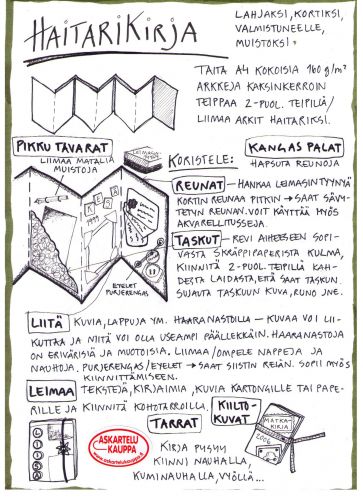 HAITARIKIRJA
LAHJAKSI, KORTIKSI,
VALMISTUNEELLE,
MUISTOKSI.
TAITA A4 KOKOISIA 160 g/m²
ARKKEJA KAKSINKERROIN
TEIPPAA 2-PUOL. TEIPILLÄ/
LIIMAA ARKIT HAITARIKSI.
PIKKU TAVARAT
LIIMAA MATALIA
MUISTOJA
LEIMASIN-
KORISTELE:
KANGAS PALAT
HAPSUTA REUNOJA
REUNAT – HANKAA LEIMASINTYYNYÄ
KORTIN REUNAA PITKIN → SAAT SÄVY-
TETYN REUNAN. VOIT KÄYTTÄÄ MYÖS
AKVARELLITUSSEJA.
TASKUT – REVI AIHEESEEN SOPI-
VASTA SKRÄPPIPAPERISTA KULMA,
KIINNITÄ 2-PUOL. TEIPILLÄ KAH-
DESTA LAIDASTA, ETTÄ SAAT TASKUN.
SUJAUTA TASKUUN KUVA, RUNO JNE.
KESÄ
1999
EYELET
PURJERENGAS
LIITÄ – KUVIA, LAPPUJA YM. HAARANASTOILLA – KUVAA VOI LII-
KUTTAA JA NIITÄ VOI OLLA USEAMPI PÄÄLLEKKÄIN. HAARANASTOJA
ON ERIVÄRISIÄ JA MUOTOISIA. LIIMAA/OMPELE NAPPEJA JA
NAUHOJA. PURJERENGAS/EYELET → SAAT SIISTIN REIÄN. SOPII MYÖS
KIINNITTÄMISEEN.
LEIMAA TEKSTEJÄ, KIRJAIMIA, KUVIA KARTONGILLE TAI PAPE-
RILLE JA KIINNITÄ KOHOTARROILLA.
KIILTO-
KUVAT
TARRAT
ASKARTELU
KAUPPA
www.askartelukauppa.fi
KIRJA PYSYY
KIINNI NAUHALLA,
KUMINAUHALLA, VYÖLLÄ...
MATKA-
KIRJA
2006